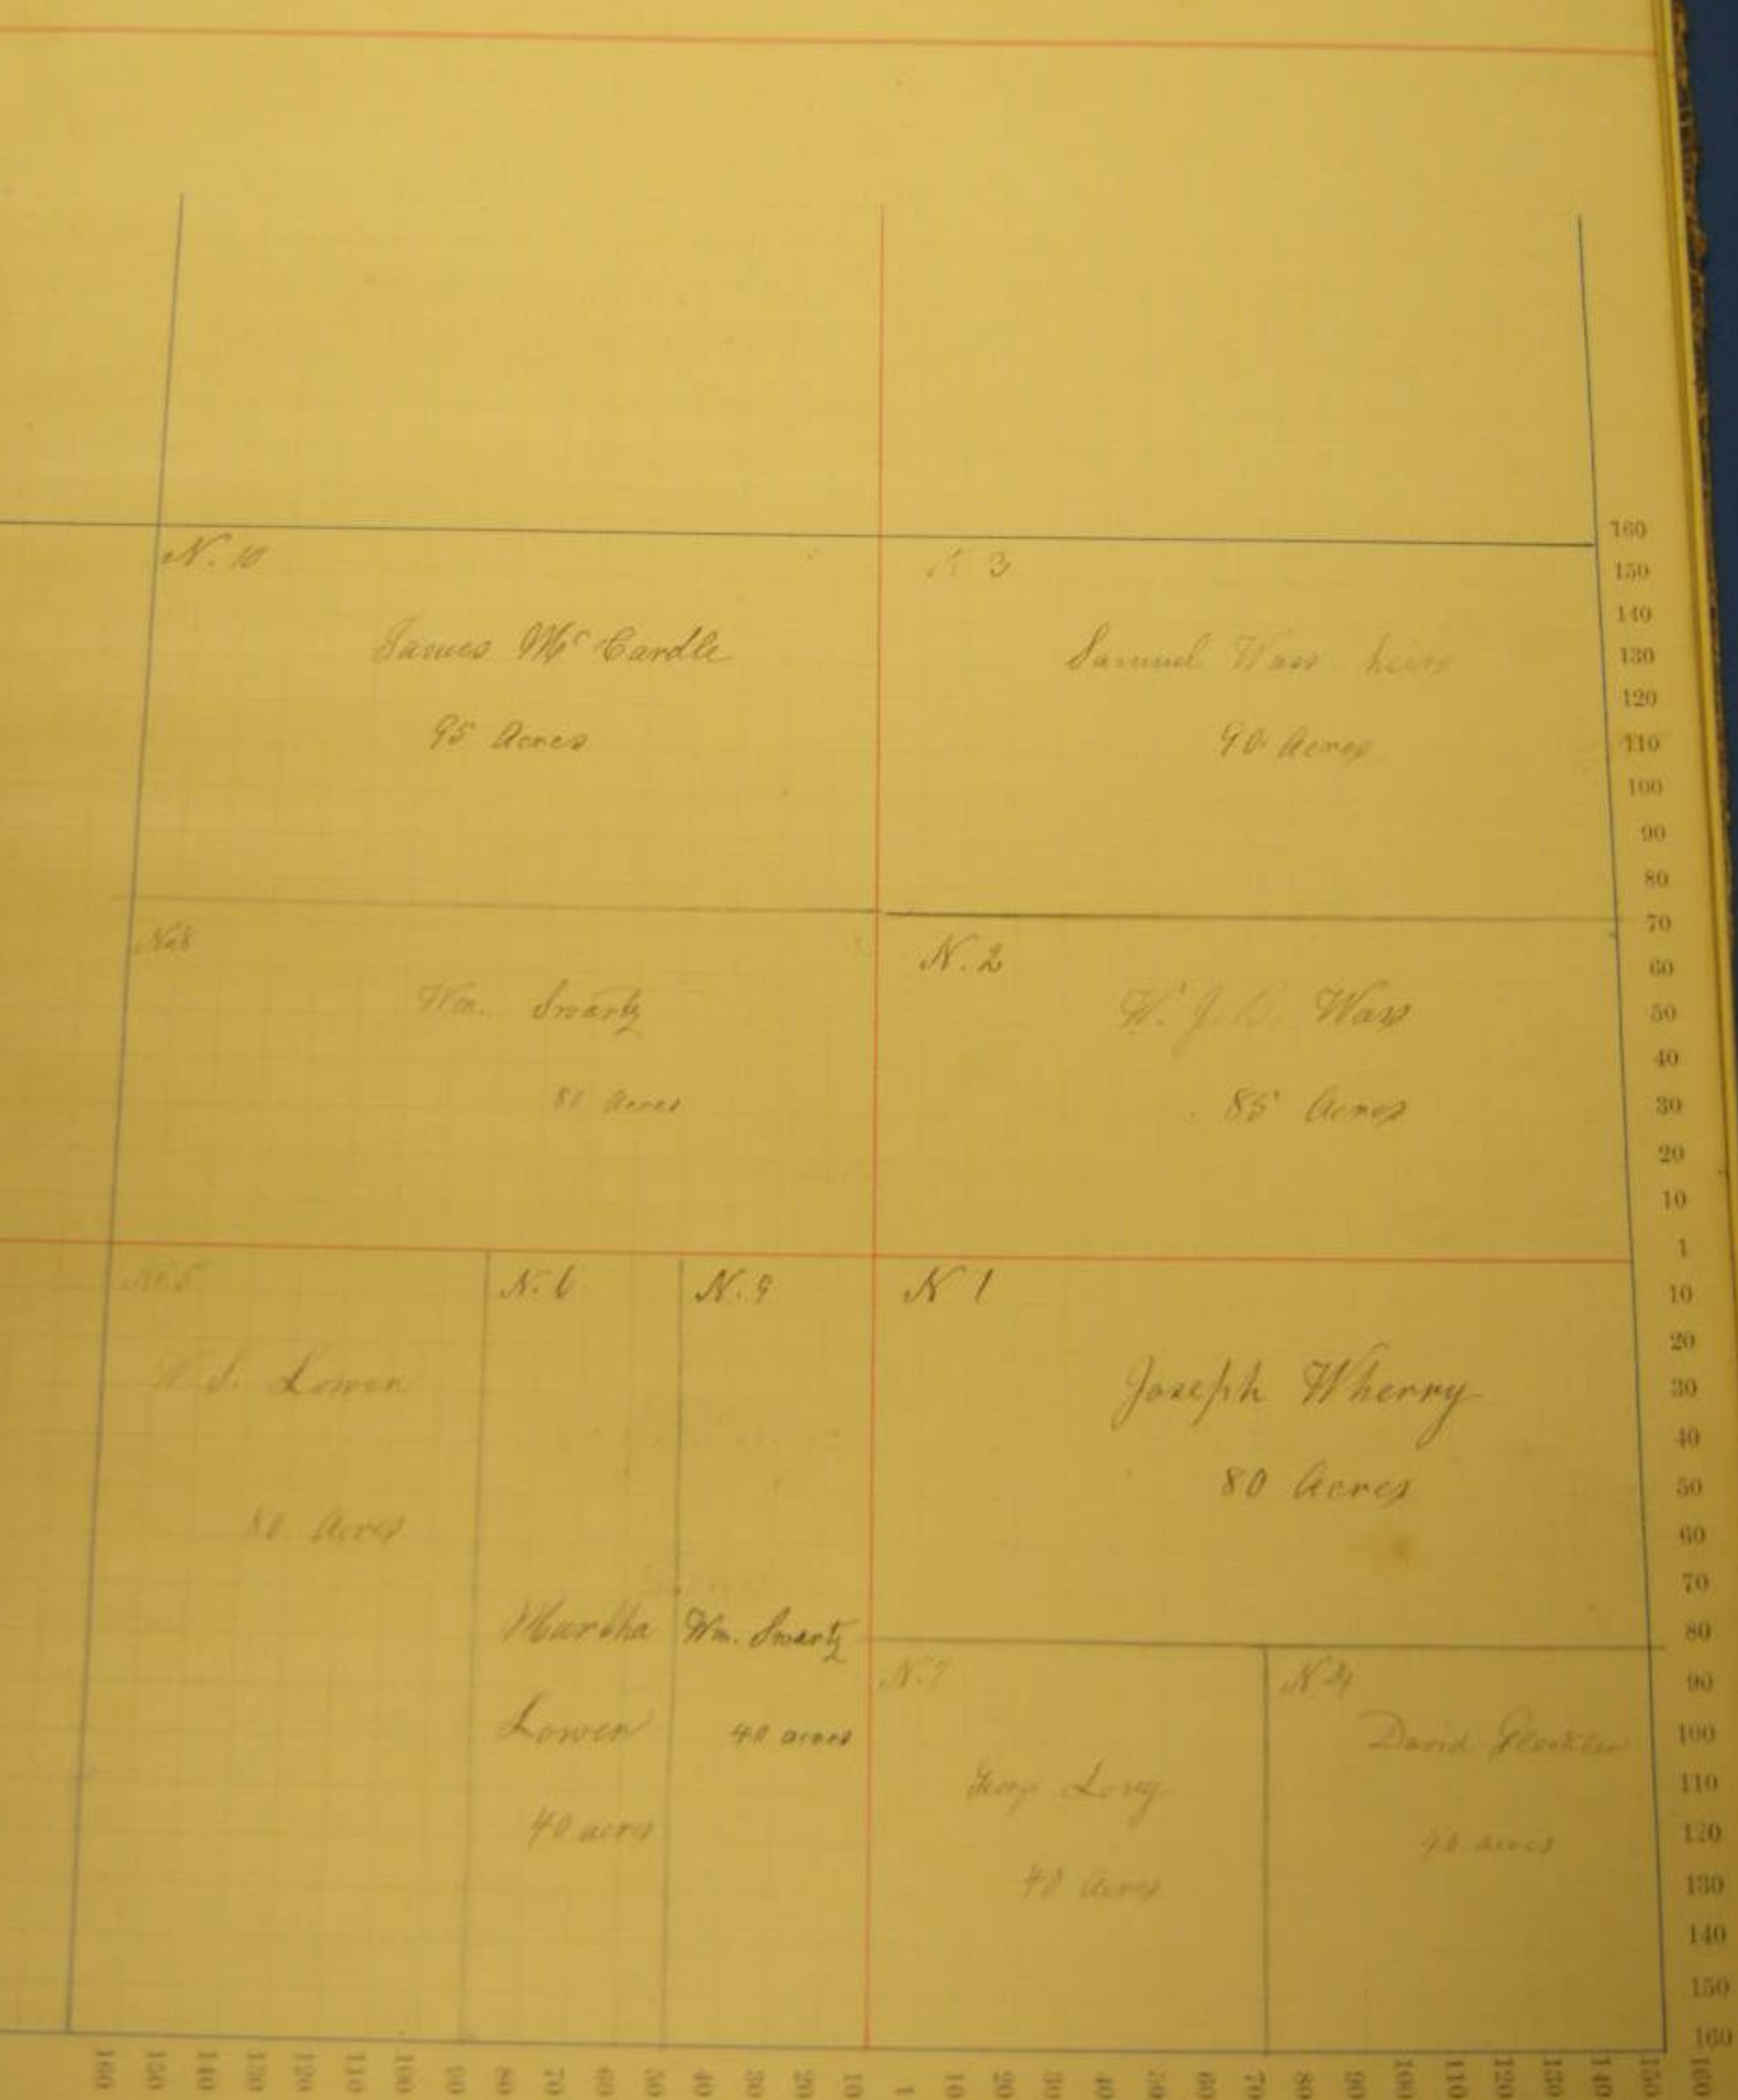 N. 10
James Mc Cardle
95 Acres
3
Samuel Wass heirs
90 Acres
No 8
Wm. Swartz
acres
N. 2
W. J. Wass
85 Acres
W. S. Lowen
80 Acres
N. 6
Martha
Lowen
40 acres
N. 9
Wm. Swartz
40 acres
N 1
Joseph Wherry
80 Acres
N. 7
Long
40 Acres
N 4
David
40 acres
160
150
140
130
120
110
100
90
80
70
60
50
40
30
20
10
1
10
20
30
40
50
60
70
80
90
100
110
120
130
140
150
160
160 150 140 130 120 110 100 90 80 70 60 50 40 30 20 10 1 10 20 30 40 50 60 70 80 90 100 110 120 130 140 150 160